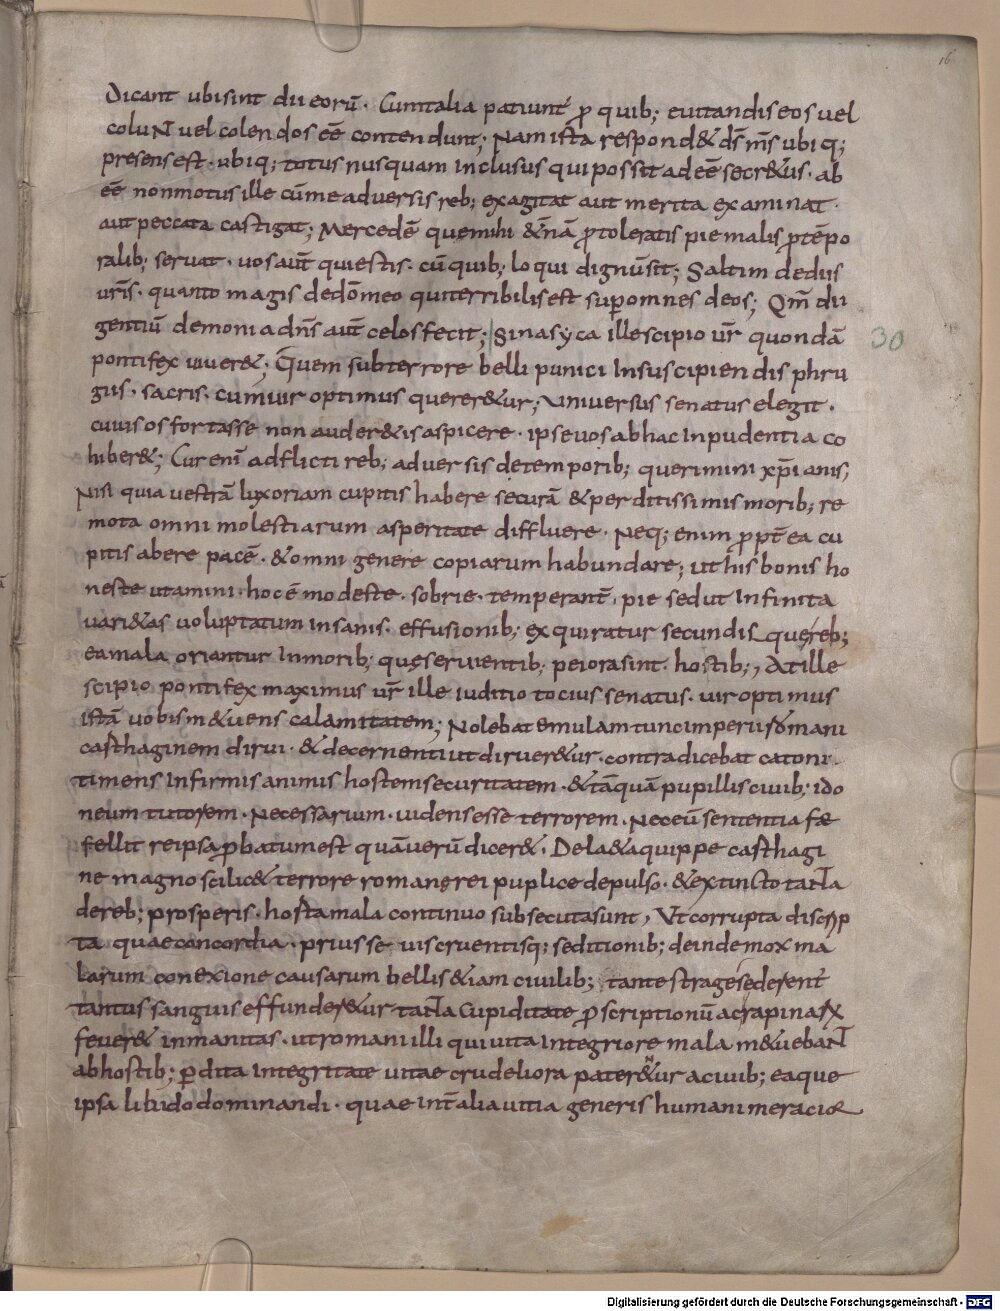 16
Dicant ubi sint dii eorū. Cum talia patiunt̄ ꝓ quib; euitandis eos uel
coluNt uel colendos eē contendunt; Nam ista respond& ds̄ ms̄ ubiq;
presens est. ubiq; totus nusquam inclusus qui possit adeē secr&us. ab
eē non motus ille cū me aduersis reb; exagitat aut merita examinat.
aut peccata castigat; Mercedē que mihi &̄nā ꝓ toleratis pie malis ꝓ tēpo
ralib; seruat. uos aut̄ qui estis. cū quib; loqui dignū sit; Saltim de diis
ur̄is. quanto magis de dō meo qui terribilis est sup omnes deos; Qm̄ dii
gentiū demonia dn̄s aut̄ celos fecit; Si nasyca ille scipio ur̄ quondā
30
pontifex uiuer&; Quem sub terrore belli punici In suscipiendis phru
giis. sacris. cum uir optimus querer&ur; Uniuersus senatus elegit.
cuius os fortasse non auder&is aspicere. ipse uos ab hac inpudentia co
hiber&; Cur eni adflicti reb; aduersis de temporib; querimini xp̄ianis;
Nisi quia uestrā luxoriam cupitis habere securā & perditissimis morib; re
mota omni molestiarum asperitate diffluere. Neq; enim ꝓpt̄ ea cu
pitis abere pacē. & omni genere copiarum habundare; ut his bonis ho
neste utamini. hoc ē modeste. sobrie. temperant̄. pie sed ut Infinita
uari&as uoluptatum insanis. effusionib; exquiratur secundis que reb;
ea mala oriantur In morib; que seruientib; peiora sint hostib;, At ille
scipio pontifex maximus ur̄ ille iuditio tocius senatus. uir optimus
istā uobis m&uens calamitatem; Nolebat emulam tunc imperii romani
casthaginem dirui. & decernenti ut diruer&ur. contradicebat catoni.
timens Infirmis animis hostem securitatem. & tāquā pupillis ciuib; ido
neum tutorem. Necessarium. uidens esse terrorem. Nec eū sententia fæ
fellit re ipsa ꝓbatum est quā uerū dicer&. Dela&a quippe casthagi
ne magno scilic& terrore romane rei puplice depulso. & extincto taNta
de reb; prosperis. hosta mala continuo subsecuta sunt, Ut corrupta discrip
ta quae concordia. prius seuis cruentisq; seditionib; deinde mox ma
larum conexione causarum bellis &iam ciuilib; tante strages ederent̄
tantus sanguis effunder&ur taNta Cupiditate ꝓscriptionū ac rapinarx
feuer& inmanitas. ut romani illi qui uita Integriore mala m&uebaNt
ab hostib; ꝑdita Integritate uitae crudeliora pater&ur a ciuib; eaque
ipsa libido dominandi. quae int̄ alia uitia generis humani meracior
Digitalisierung gefördert durch die Deutsche Forschungsgemeinschaft - DFG